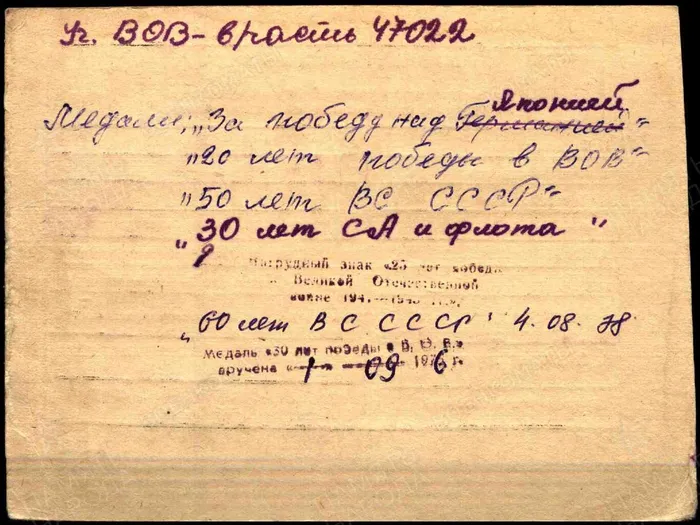 Уч. ВОВ - в/часть 47022
Японией
Медали: „За победу над Германией"
„20 лет победы в ВОВ"
„50 лет ВС СССР"
„30 лет СА и флота"
Нагрудный знак «25 лет победы
в Великой Отечественной
войне 1941—1945 гг.»
„60 лет ВС СССР" 4.08.78
Медаль «30 лет победы в В. О. В.»
вручена « 1 » 09 1976 г.